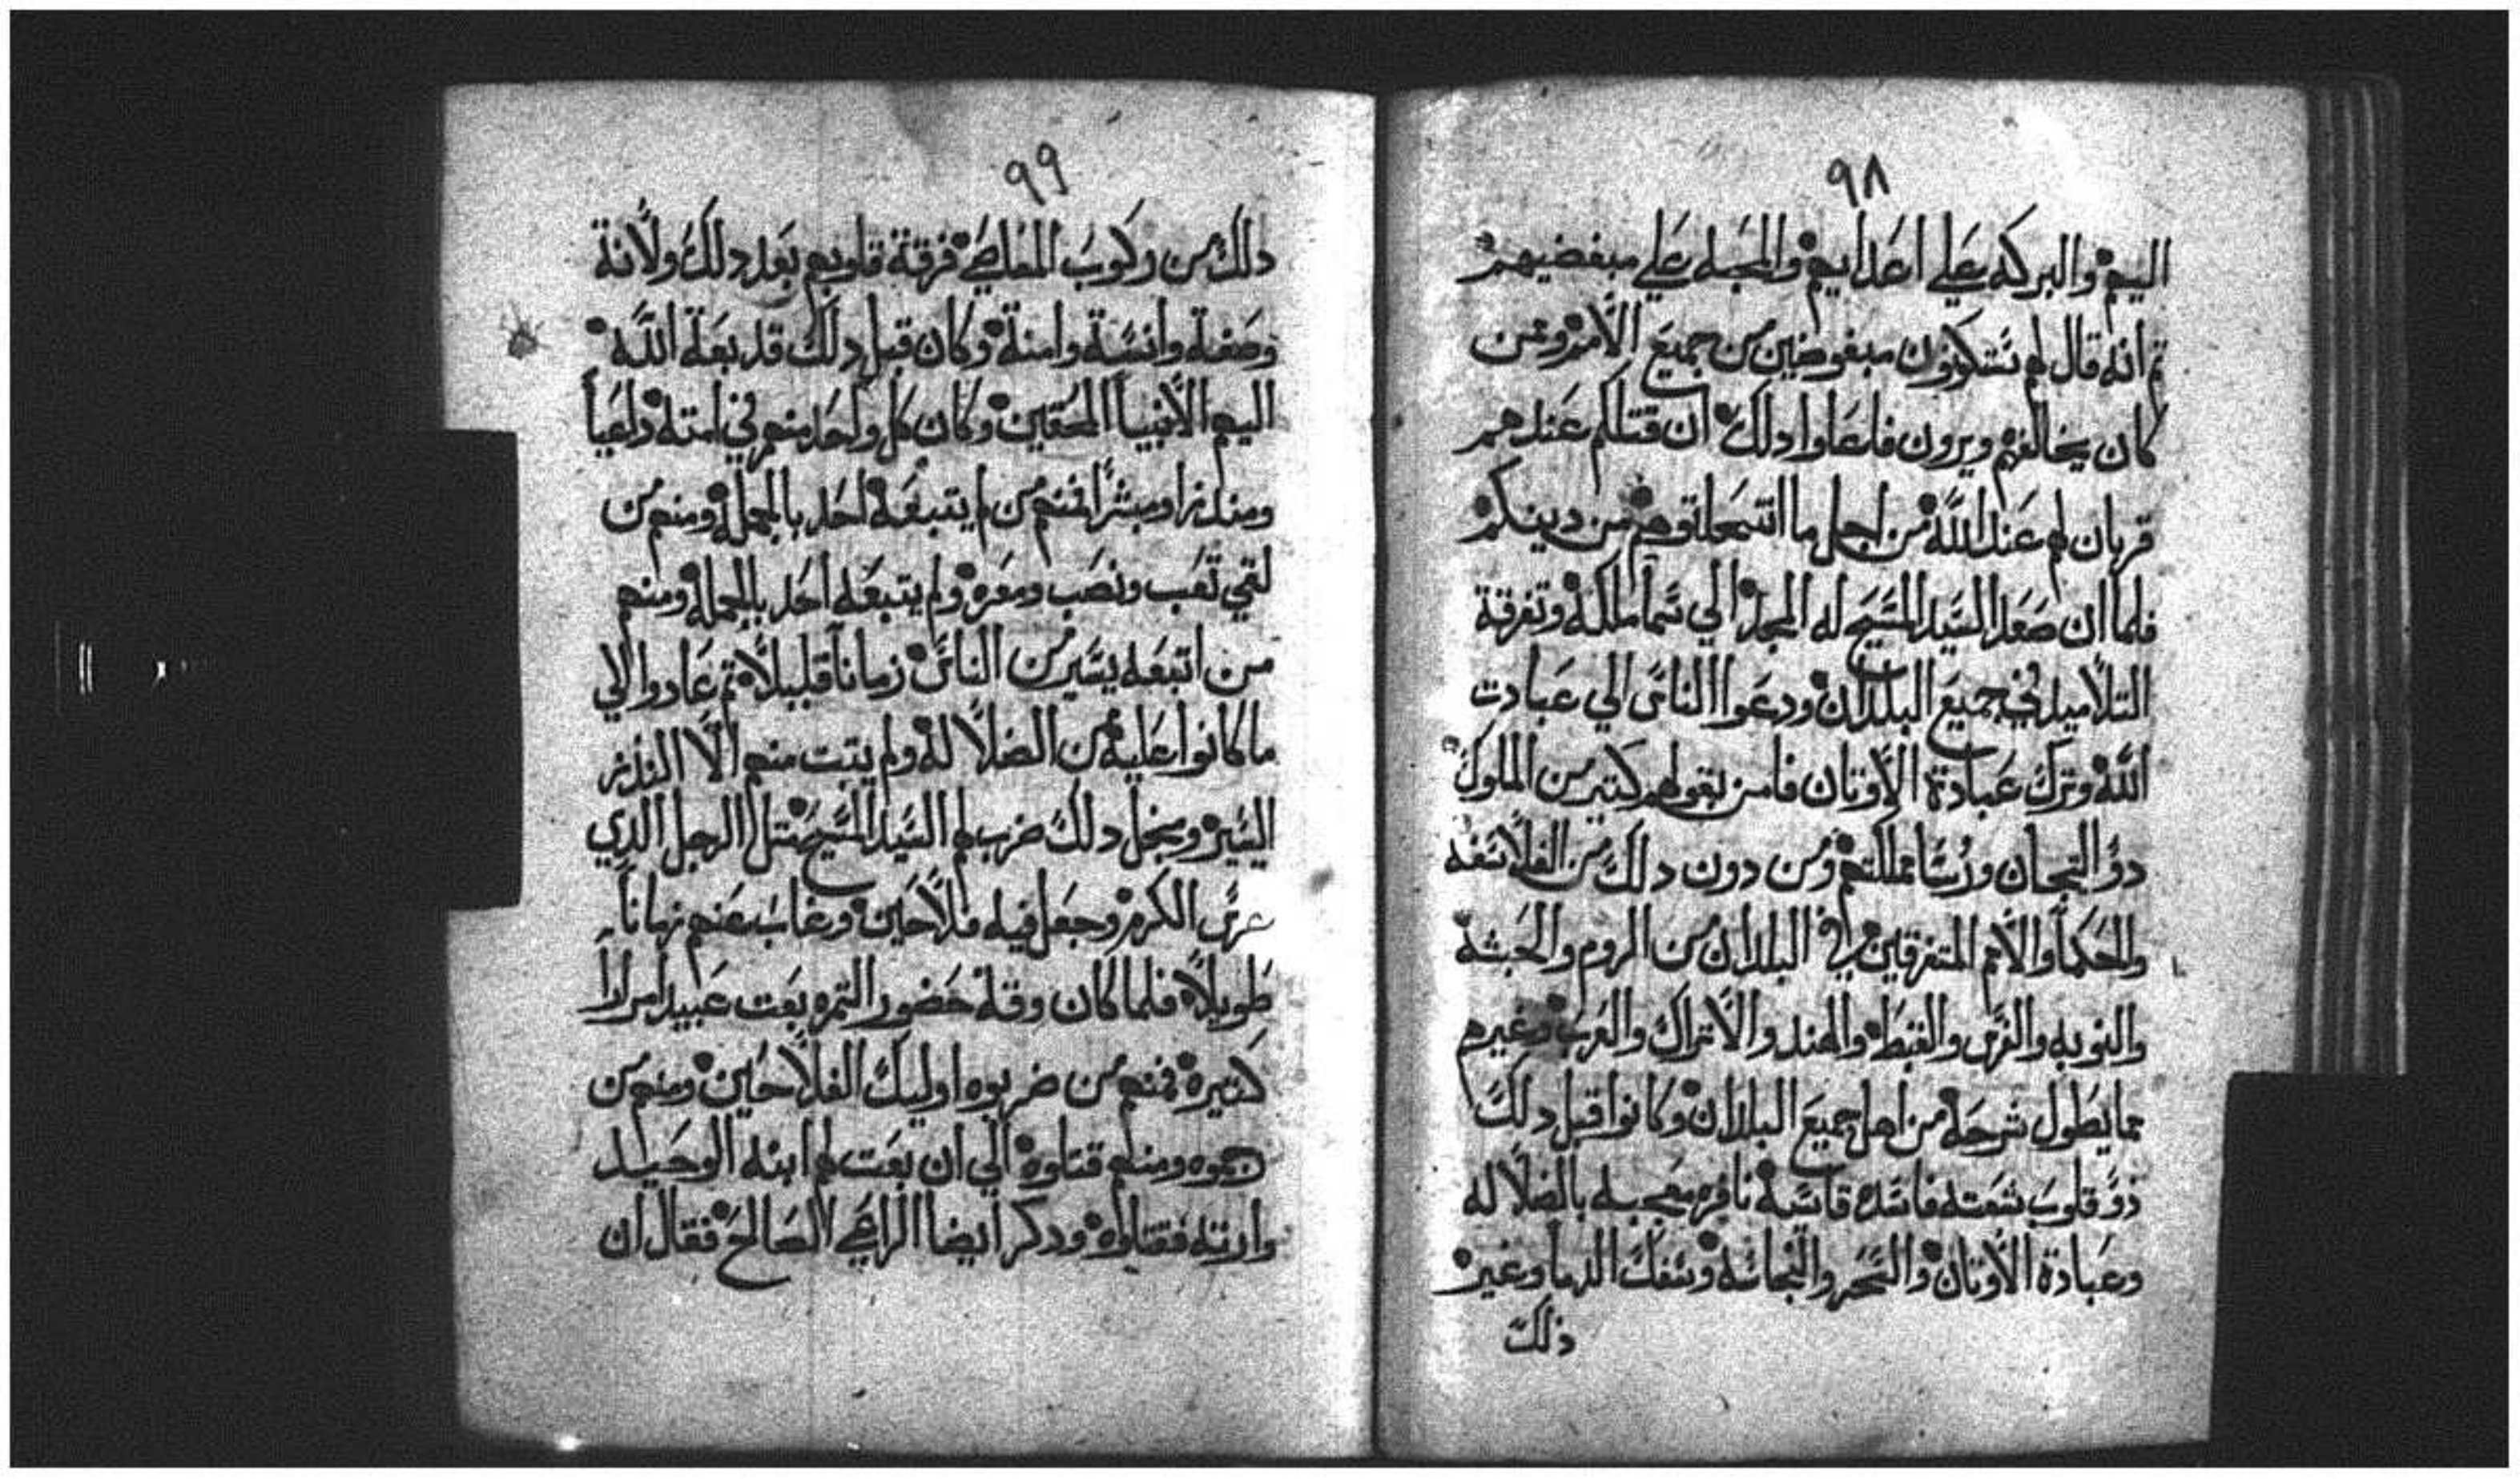 ٩٨
اليهم والبركه علي اعدايهم والمحبه علي مبغضيهم
تم انه قال لهم ستكونون مبغوضين من جميع الامم وممن
كان يخالفهم ويرون فاعلوا دلك ان قتلكم عندهم
قربان لهم عند الله من اجل ما انتحلتوهم من دينكم
فلما ان صعد السيد المسيح له المجد الي سما ملكه وتفرقة
التلاميد في جميع البلدان ودعوا الناس الي عبادت
الله وترك عبادة الاوتان فامن بقولهم كتير من الملوك
دو التيجان وروسا مملكتهم ومن دون دلك من الفلاسفه
والحكما والامم المتفرقين في البلدان من الروم والحبشة
والنوبه والفرس والقبط والهند والاتراك والعرب وغيرهم
مما يطول شرحه من اهل جميع البلدان وكانوا قبل دلك
ذو قلوب شعته فاسده قاسيه نافره معجبه بالضلاله
وعبادة الاوتان والسحر والنجاسه وسفك الدما وغير
ذلك
٩٩
دلك من ركوب المعاصي فرقة قلوبهم بعد دلك ولانة
وصغة وانسة وامنة وكان قبل دلك قد بعة الله
اليهم الانبيا المحقين وكان كل واحد منهم في امته داعيا
ومندرا ومبشرا فمنهم من لم يتبعه احد بالجمله ومنهم من
لقي تعب ونصب ومعره ولم يتبعه احد بالجمله ومنهم
من اتبعه يسير من الناس زمانا قليلا تم عادوا الي
ما كانوا عليه من الضلاله ولم يتبت منهم الا النزر
اليسير ومجمل دلك ضرب لهم السيد المسيح متل الرجل الدي
غرس الكرم وجعل فيه فلاحين وغاب عنهم زمانا
طويلا فلما كان وقة حضور التمره بعت عبيد مرارا
كتيره فمنهم من ضربوه اوليك الفلاحين ومنهم من
رجموه ومنهم قتلوه الي ان بعت لهم ابنه الوحيد
وارته فقتلوه ودكر ايضا الراعي الصالح فقال ان